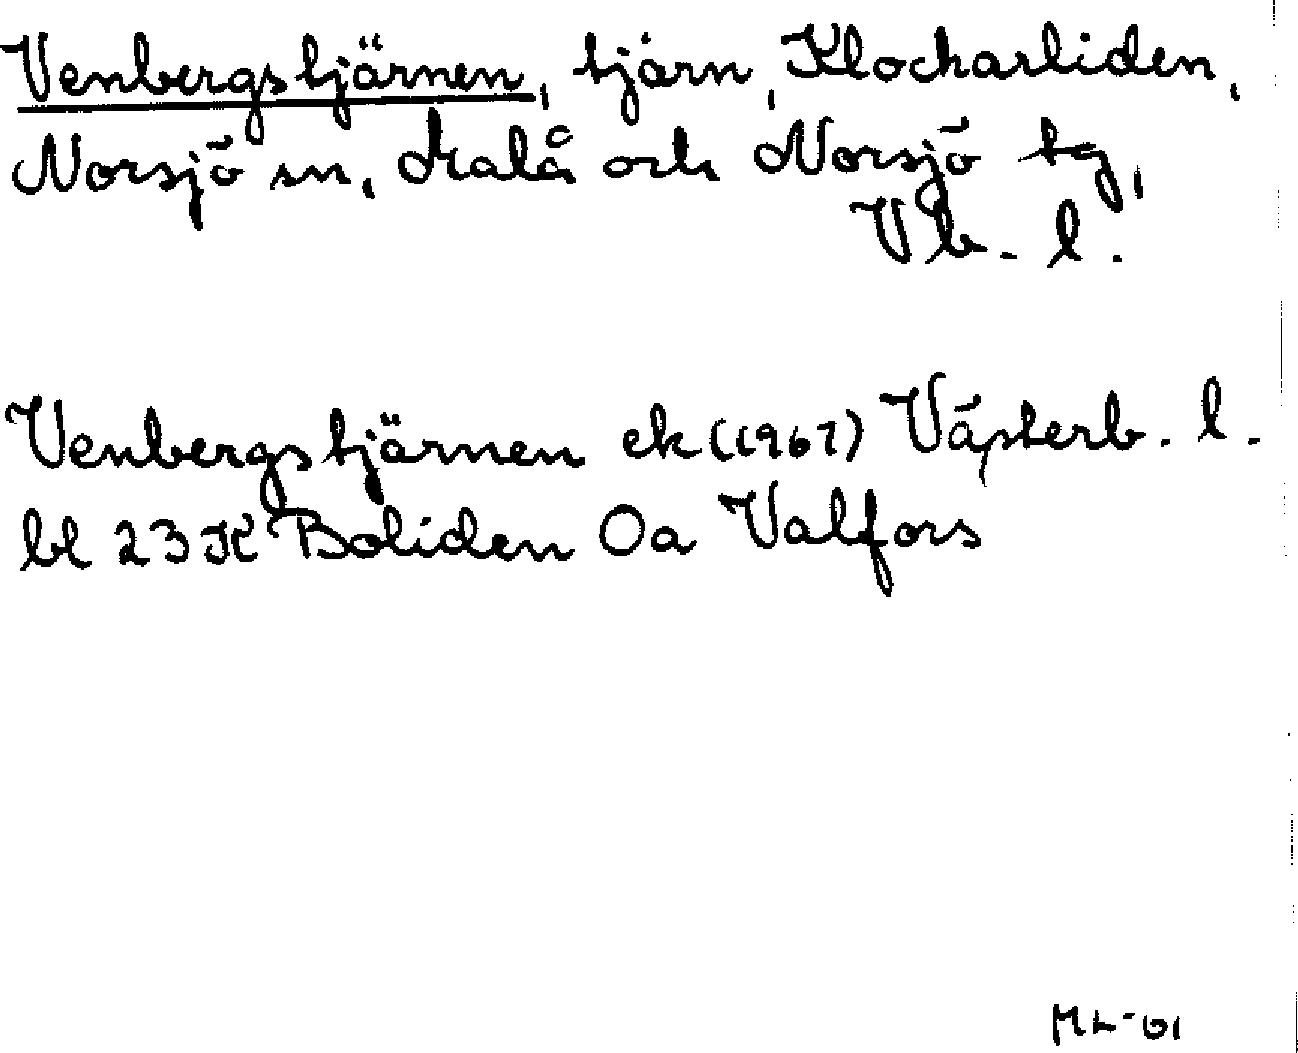 Venbergstjärnen, tjärn, Klockarliden,
Norsjö sn, Malå och Norsjö tg,
Vb. l.
Venbergstjärnen ek (1967) Västerb. l.
bl 23K Boliden 0a Valfors